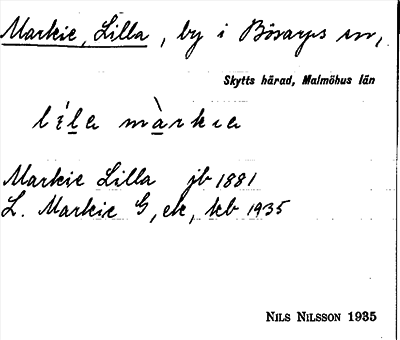 Markie, Lilla, by i Bösarps sn,
Skytts härad, Malmöhus län
lila màrkıa
Markie Lilla jb 1881
L. Markie G, ek, kb 1935
NILS NILSSON 1935